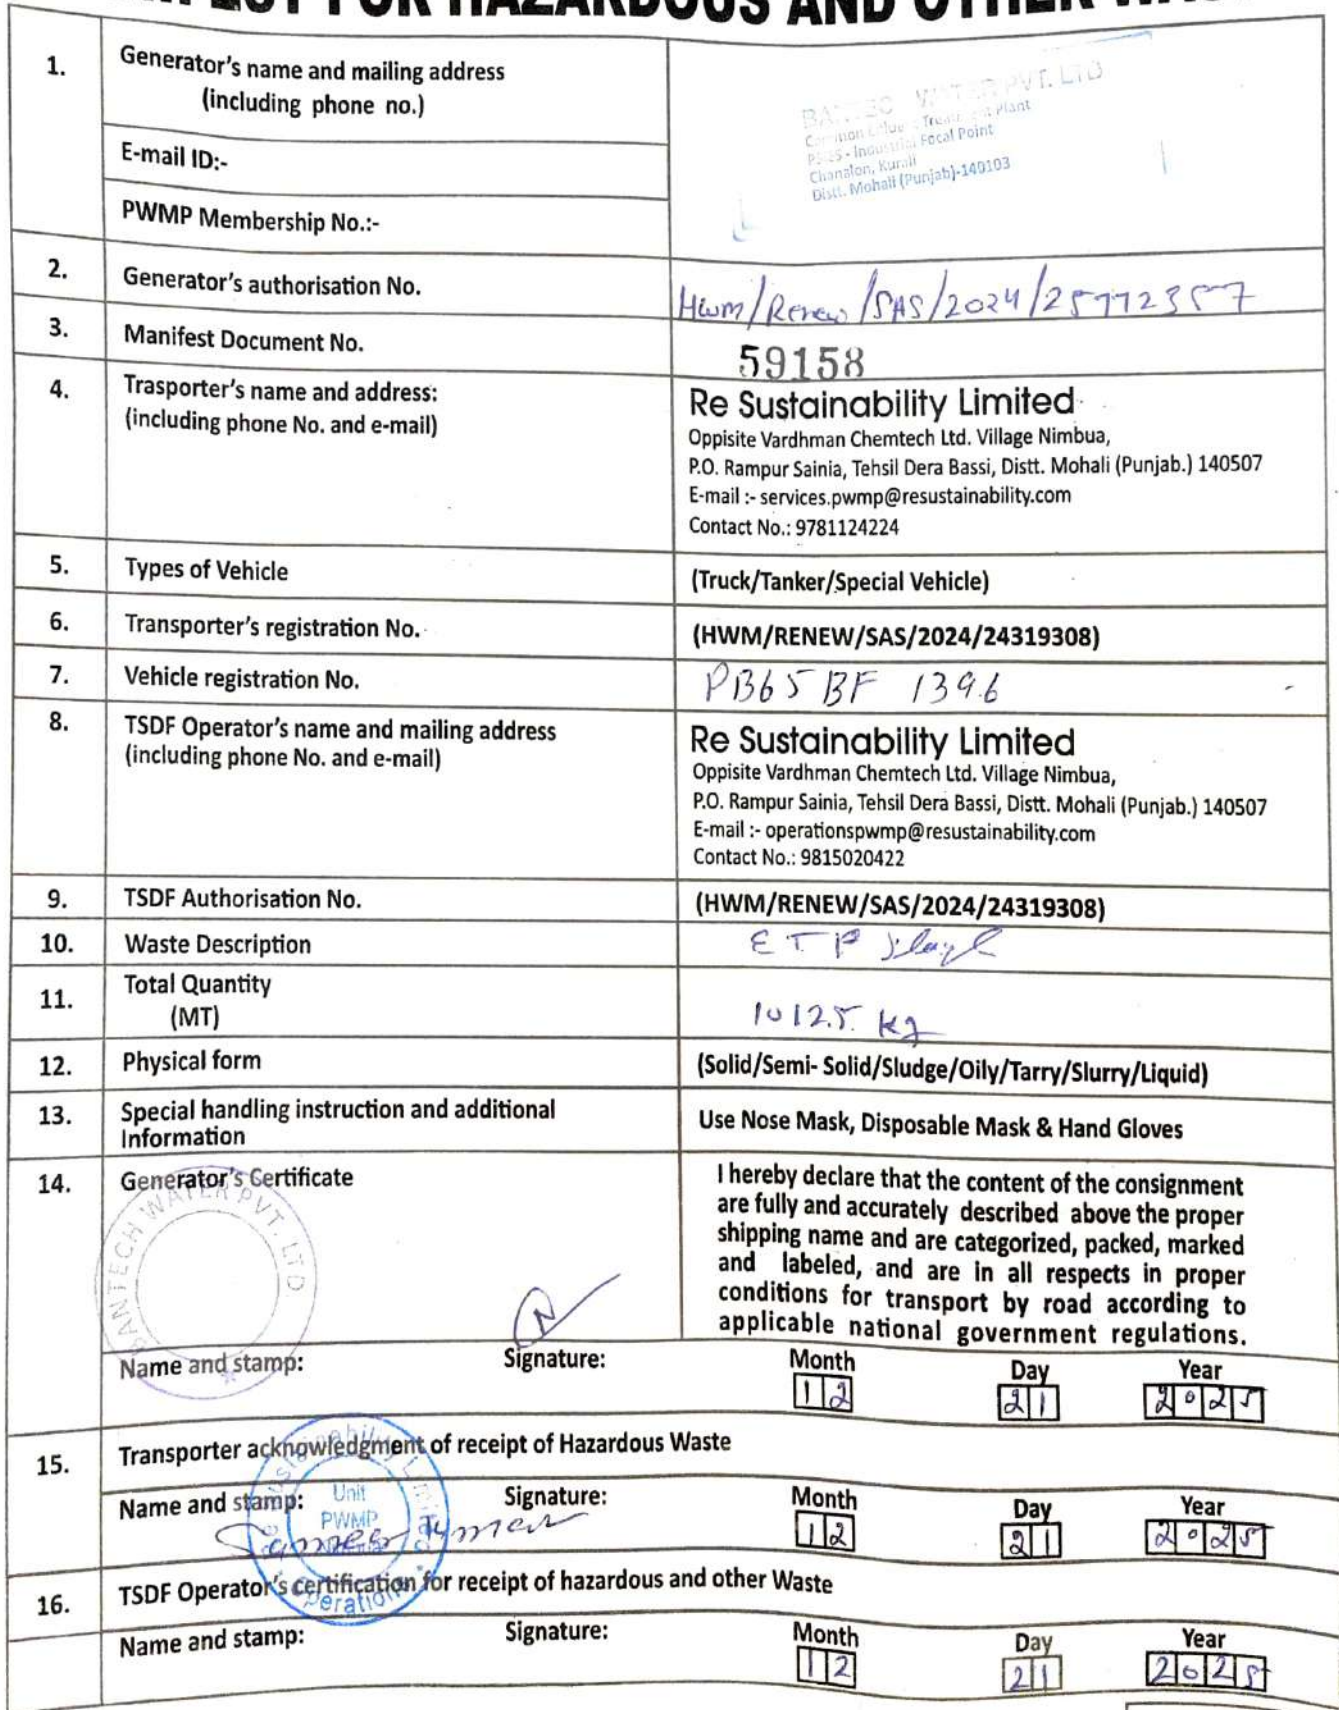 MANIFEST FOR HAZARDOUS AND OTHER WASTE
1. Generator's name and mailing address
(including phone no.)
BANTEC WATER PVT. LTD
Common Treatment Plant
Industrial Focal Point
Chanalon, Kurali
Distt. Mohali (Punjab)-140103
E-mail ID:-
PWMP Membership No.:-
2. Generator's authorisation No. HWM/Renew/SAS/2024/25772357
3. Manifest Document No. 59158
4. Trasporter's name and address:
(including phone No. and e-mail)
Re Sustainability Limited
Oppisite Vardhman Chemtech Ltd. Village Nimbua,
P.O. Rampur Sainia, Tehsil Dera Bassi, Distt. Mohali (Punjab.) 140507
E-mail :- services.pwmp@resustainability.com
Contact No.: 9781124224
5. Types of Vehicle (Truck/Tanker/Special Vehicle)
6. Transporter's registration No. (HWM/RENEW/SAS/2024/24319308)
7. Vehicle registration No. PB65BF 1396
8. TSDF Operator's name and mailing address
(including phone No. and e-mail)
Re Sustainability Limited
Oppisite Vardhman Chemtech Ltd. Village Nimbua,
P.O. Rampur Sainia, Tehsil Dera Bassi, Distt. Mohali (Punjab.) 140507
E-mail :- operationspwmp@resustainability.com
Contact No.: 9815020422
9. TSDF Authorisation No. (HWM/RENEW/SAS/2024/24319308)
10. Waste Description ETP
11. Total Quantity
(MT) 1012.5 kg
12. Physical form (Solid/Semi- Solid/Sludge/Oily/Tarry/Slurry/Liquid)
13. Special handling instruction and additional
Information
Use Nose Mask, Disposable Mask & Hand Gloves
14. Generator's Certificate
BANTECH WATER PVT. LTD
I hereby declare that the content of the consignment
are fully and accurately described above the proper
shipping name and are categorized, packed, marked
and labeled, and are in all respects in proper
conditions for transport by road according to
applicable national government regulations.
Name and stamp: Signature: Month Day Year
12 21 2025
15. Transporter acknowledgment of receipt of Hazardous Waste
Name and stamp: Signature: Month Day Year
Unit
PWMP
12 21 2025
16. TSDF Operator's certification for receipt of hazardous and other Waste
Name and stamp: Signature: Month Day Year
12 21 2025